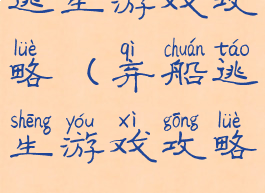 逃生游戏攻
lüè qì chuán táo
略（弃船逃
shēng yóu xì gōng lüè
生游戏攻略